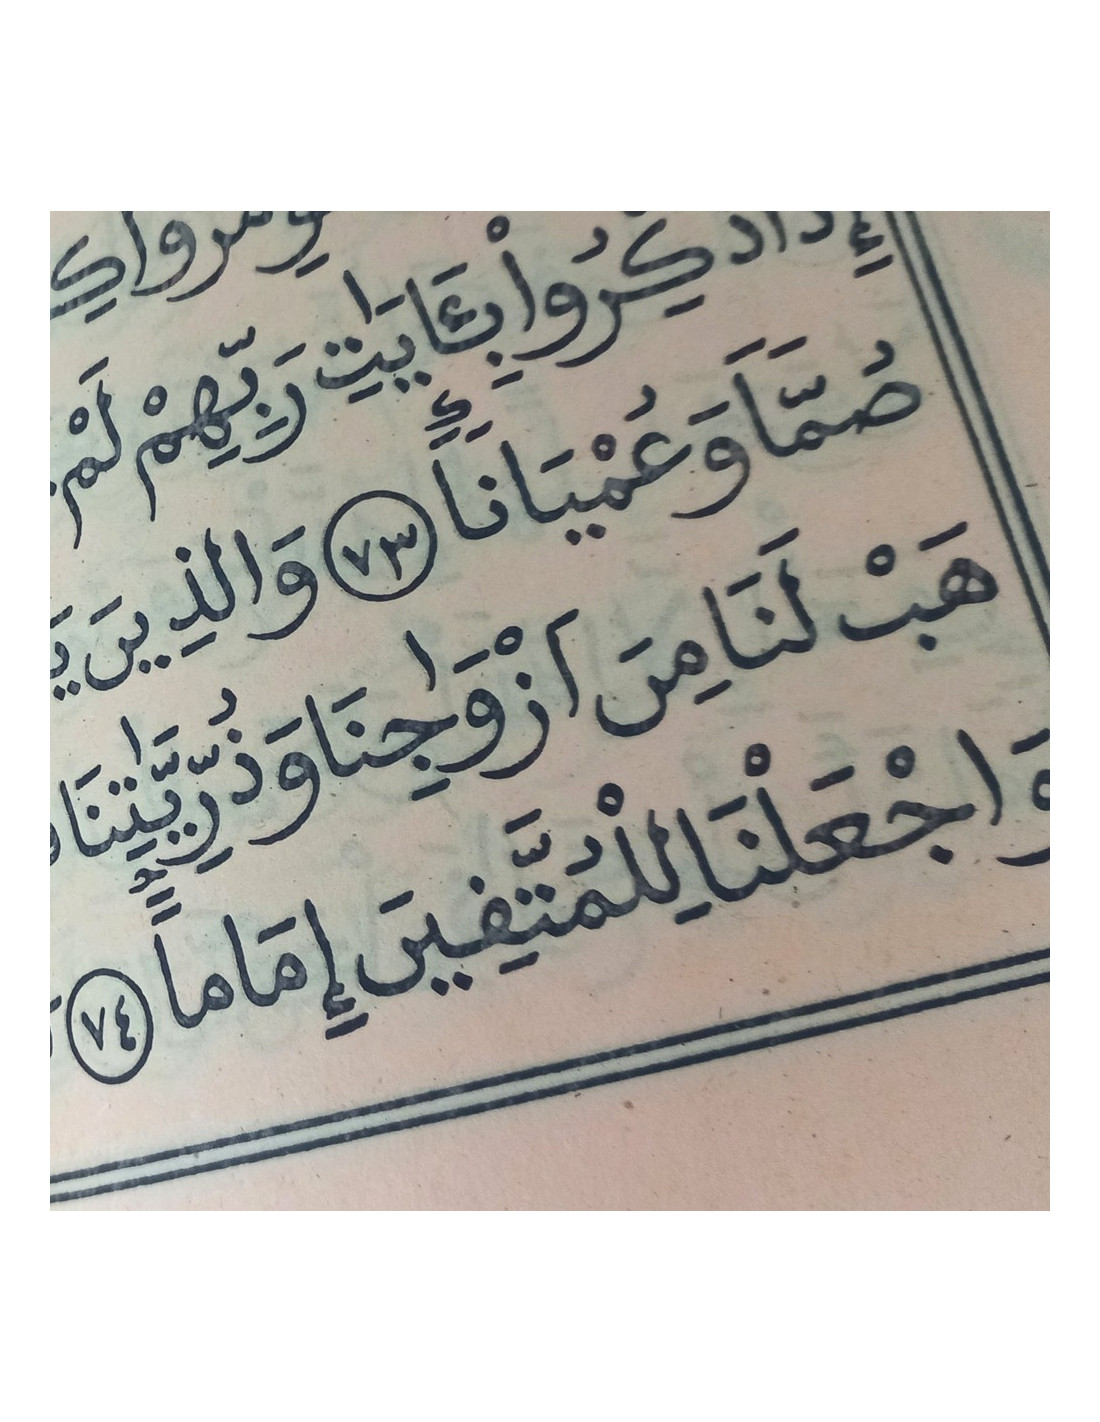 إِذَا ذُكِّرُوا۟ بِـَٔايَٰتِ رَبِّهِمْ لَمْ
صُمّاً وَعُمْيَاناً ٧٣ وَالذِينَ
هَبْ لَنَا مِنَ ازْوَٰجِنَا وَذُرِّيَّٰتِنَا
وَاجْعَلْنَا لِلْمُتَّقِينَ إِمَاماً ٧٤